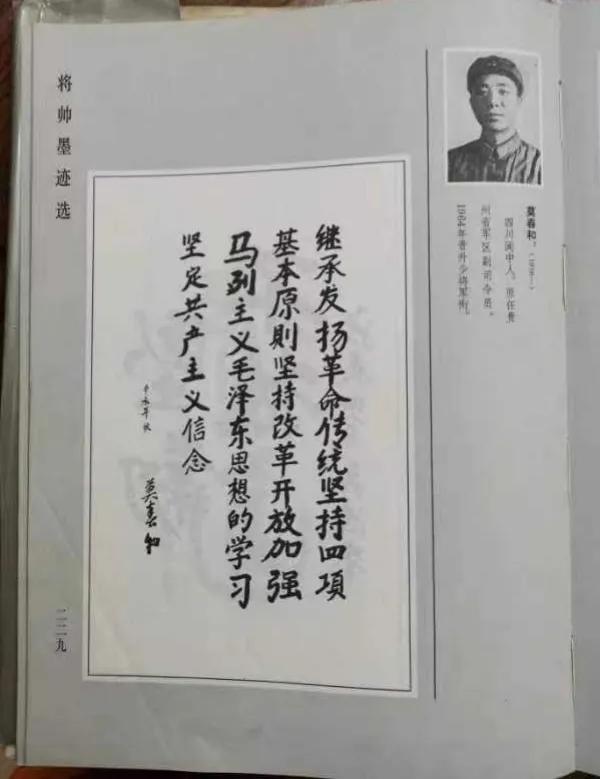 将帅墨迹选
莫春和,
四川阆中人。原任贵
州省军区副司令员。
1964年晋升少将军衔。
继承发扬革命传统坚持四项
基本原则坚持改革开放加强
马列主义毛泽东思想的学习
坚定共产主义信念
莫春和
二二九